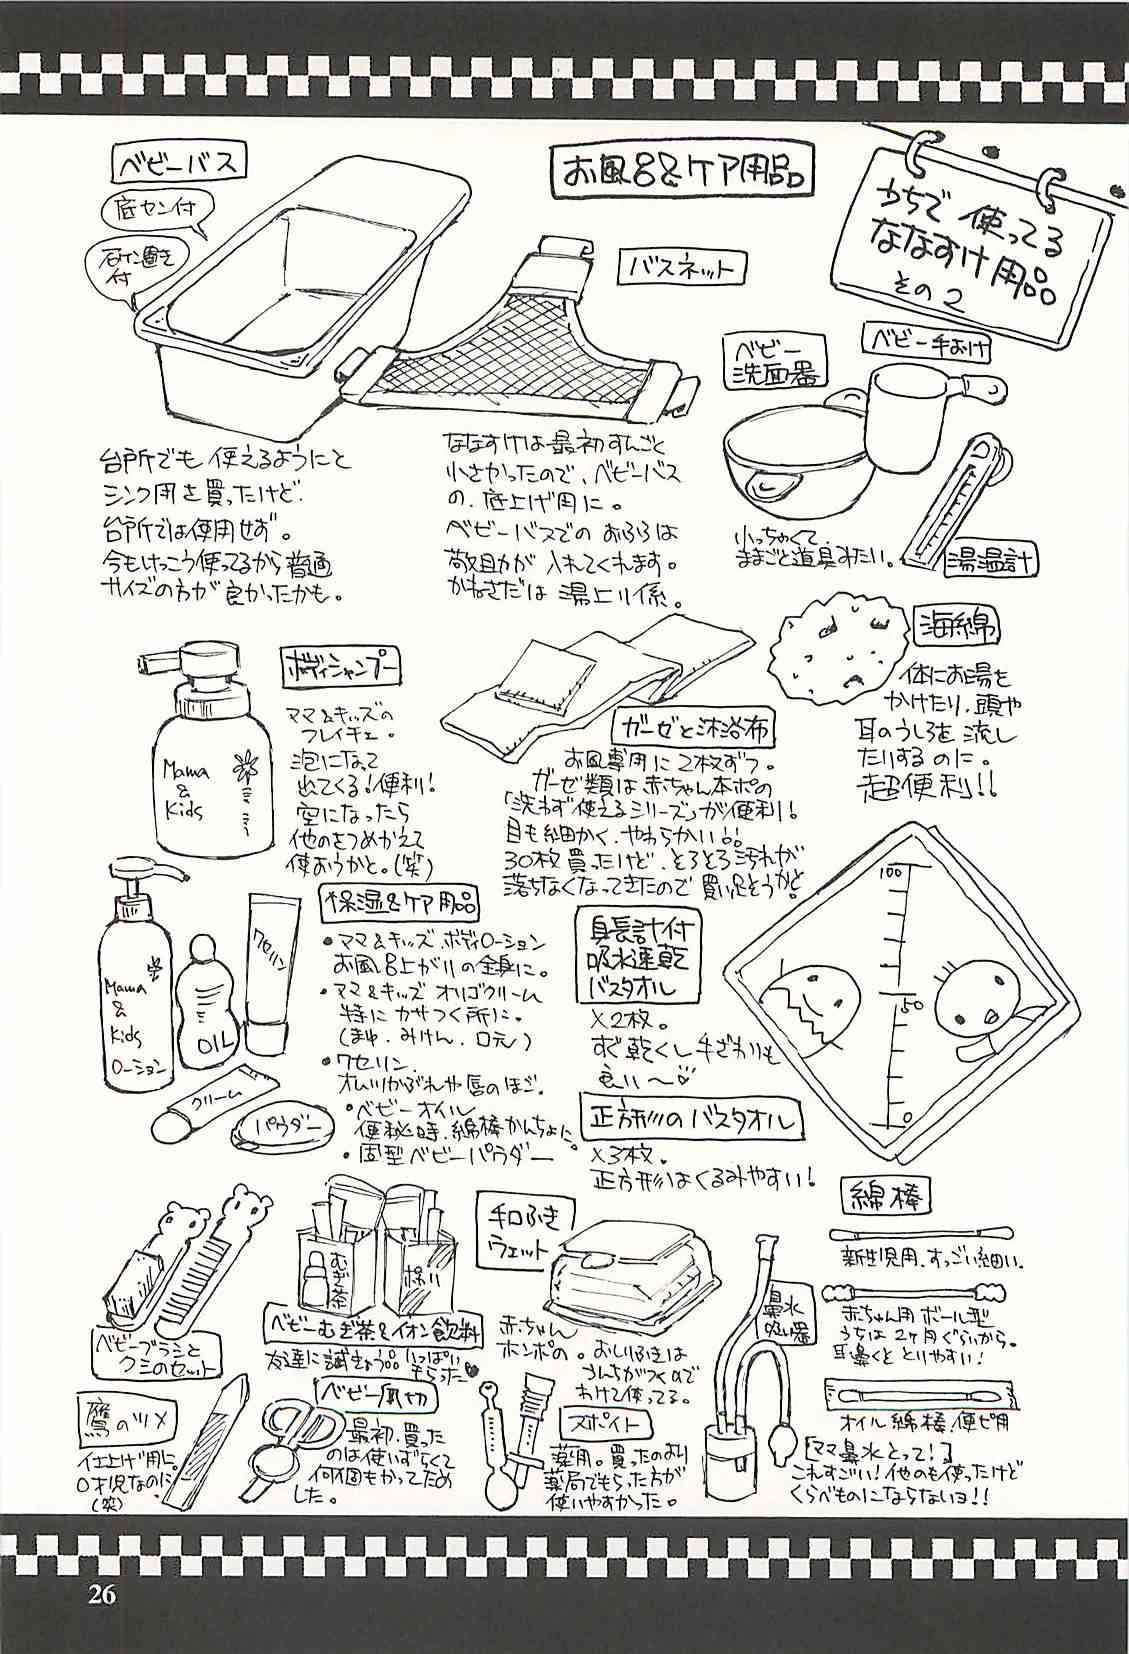 うちで使ってる
ななすけ用品
その2
お風呂&ケア用品
ベビーバス
底セン付
石ケン置き
付
台所でも使えるようにと
シンク用を買ったけど、
台所では使用せず。
今もけっこう使ってるから普通
サイズの方が良かったかも。
バスネット
ななすけは最初すんごく
小さかったので、ベビーバス
の、底上げ用に。
ベビーバスでのおふろは
敬助が入れてくれます。
かねさだは湯上り係。
ベビー
洗面器
ベビー手おけ
小っちゃくて、
ままごと道具みたい。
湯温計
海綿
体にお湯を
かけたり、頭や
耳のうしろを流し
たりするのに。
超便利!!
ボディシャンプー
Mama
&
Kids
ママ&キッズの
フレイチェ。
泡になって
出てくる!便利!
空になったら
他のをつめかえて
使おうかと。(笑)
ガーゼと沐浴布
お風呂専用に2枚ずつ。
ガーゼ類は赤ちゃん本ポの
「洗わず使えるシリーズ」が便利!
目も細かく、やわらかい。
30枚買ったけど、とろとろ汚れが
落ちなくなってきたので買い足そうかと
保湿&ケア用品
Mama
&
Kids
ローション
OIL
ワセリン
クリーム
パウダー
•ママ&キッズ ボディローション
お風呂上がりの全身に。
•ママ&キッズ オリゴクリーム
特にカサつく所に。
(まゆ、みけん、口元)
•ワセリン
オムツかぶれや唇のほご。
•ベビーオイル
便秘時、綿棒かんちょに。
•固型ベビーパウダー
身長計付
吸水速乾
バスタオル
×2枚。
すぐ乾くし手ざわりも
良い〜♡
100
50
0
正方形のバスタオル
×3枚。
正方形はくるみやすい!
ベビーブラシと
クシのセット
むぎ茶
ポカリ
ベビーむぎ茶&イオン飲料
友達に試きょう品いっぱい
もらった♥
手口ふき
ウェット
赤ちゃん
ホンポの。おしりふきは
うんちがつくので
わけて使ってる。
鼻水
吸い器
「ママ鼻水とって!」
これすごい!他のも使ったけど
くらべものにならないヨ!!
綿棒
新生児用、すっごい細い。
赤ちゃん用ボール型
うちは2ヶ月ぐらいから。
耳鼻くそとりやすい!
オイル綿棒、便ピ用
鷹のツメ
仕上げ用に。
0才児なのに。
(笑)
ベビー爪切
最初、買った
のは使いずらくて
何個もかってため
した。
スポイト
薬用。買ったのより
薬局でもらった方が
使いやすかった。
26